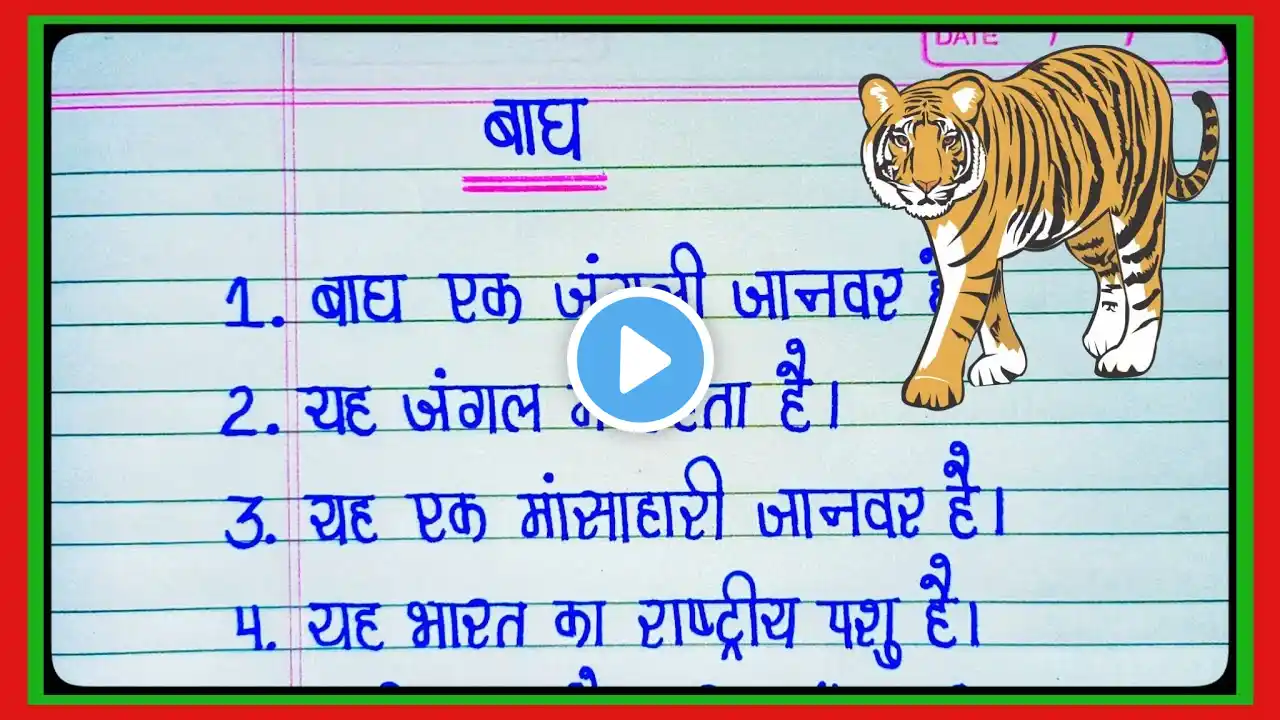 DATE / /
बाघ
1. बाघ एक जंगली जानवर
2. यह जंगल है।
3. यह एक मांसाहारी जानवर है।
4. यह भारत का राष्ट्रीय पशु है।